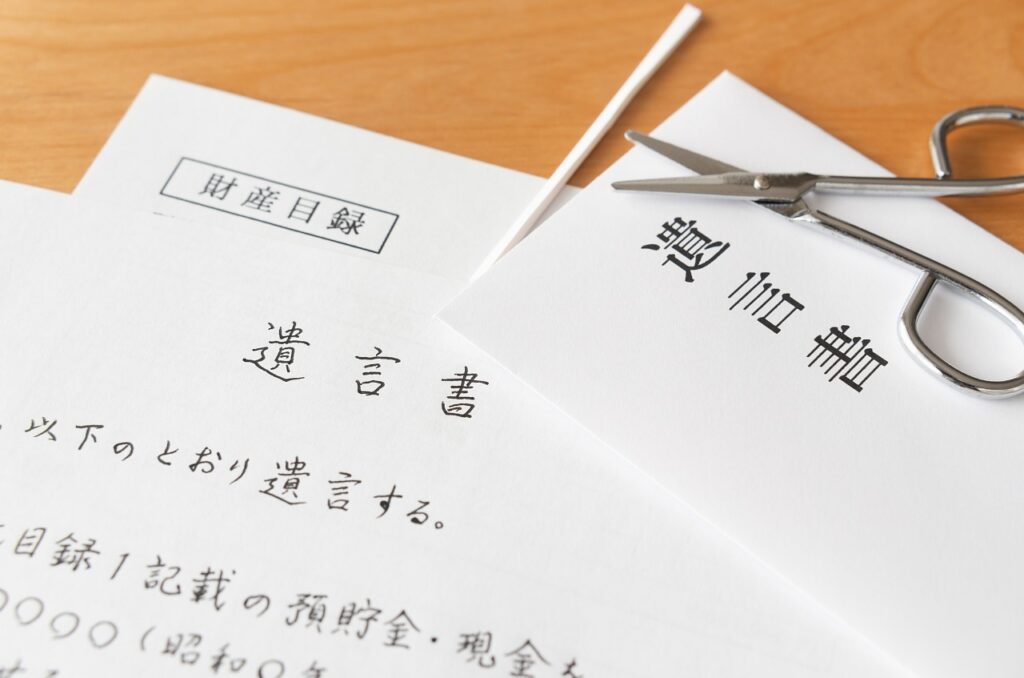 財産目録
遺言書
遺言書
、以下のとおり遺言する。
目録1記載の預貯金・現金を
〇〇〇〇(昭和〇年
する